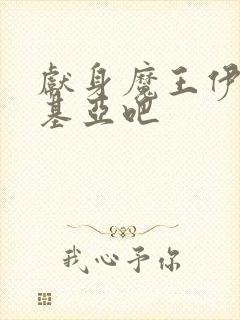 獻身魔王伊
基亞吧
我心予你